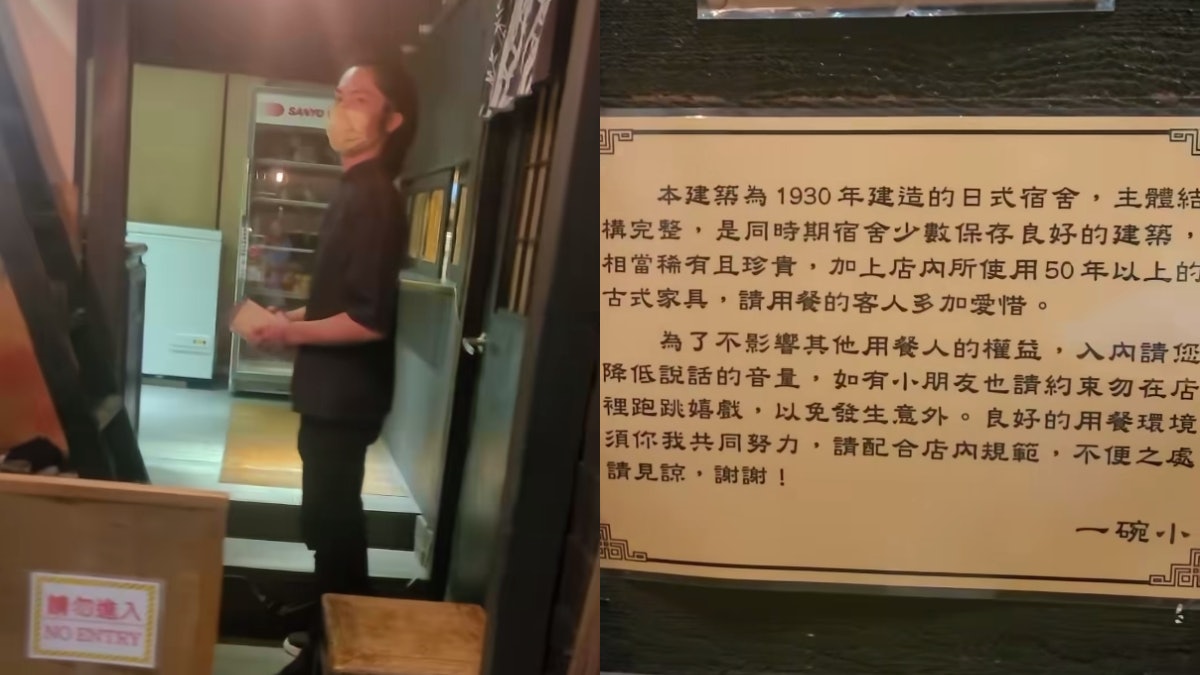 SANYO
請勿進入
NO ENTRY
本建築為1930年建造的日式宿舍，主體結
構完整，是同時期宿舍少數保存良好的建築，
相當稀有且珍貴，加上店內所使用50年以上的
古式家具，請用餐的客人多加愛惜。
為了不影響其他用餐人的權益，入內請您
降低說話的音量，如有小朋友也請約束勿在店
裡跑跳嬉戲，以免發生意外。良好的用餐環境
須你我共同努力，請配合店內規範，不便之處
請見諒，謝謝！
一碗小